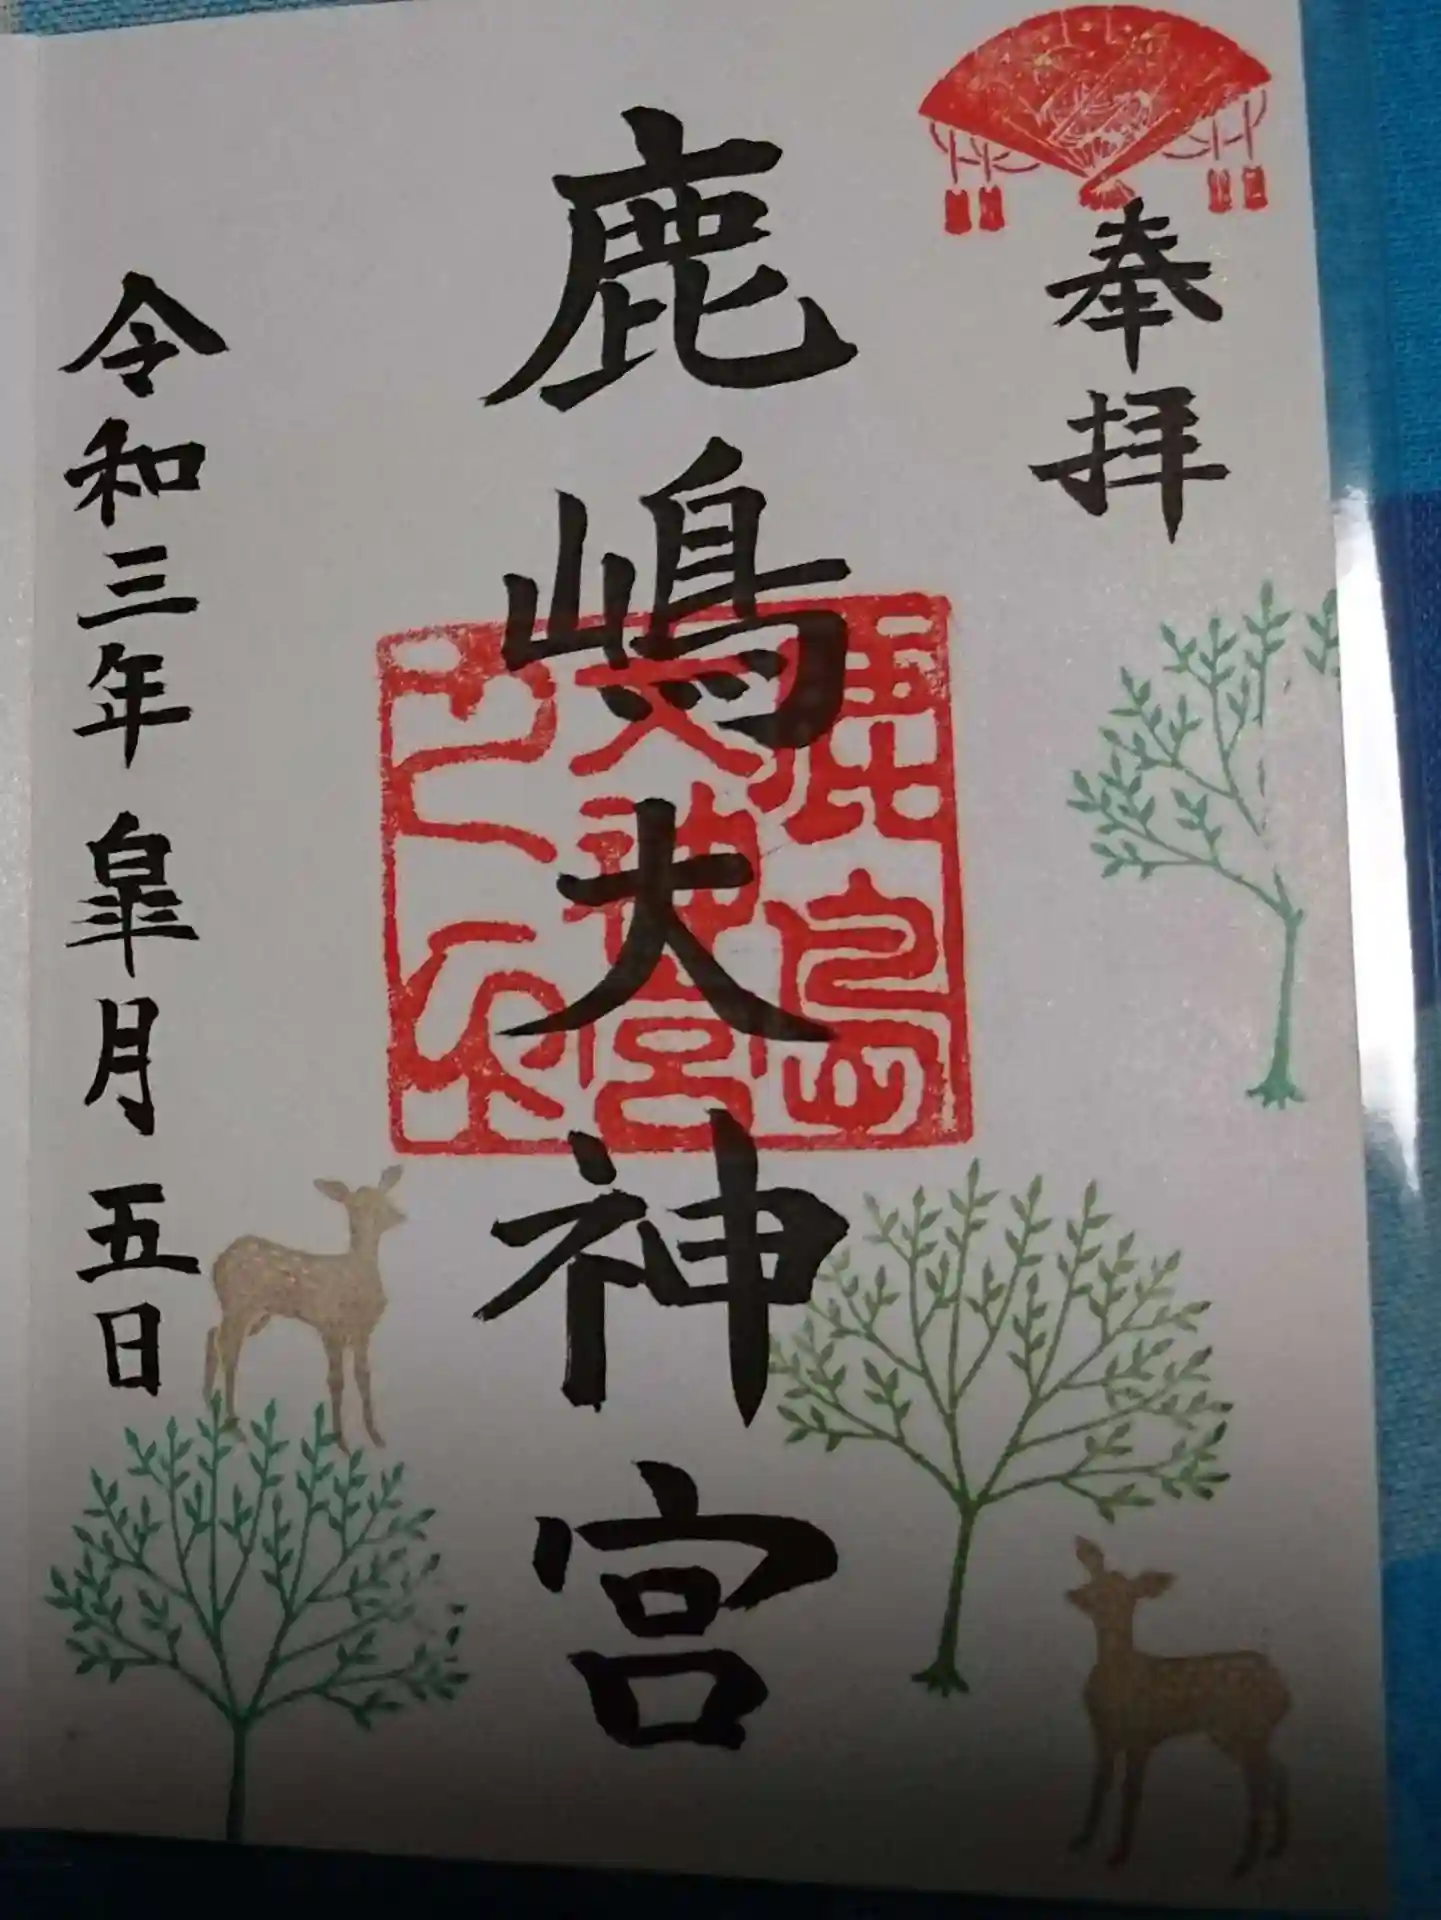 奉拝
鹿嶋大神宮
鹿島
大神宮
之印
令和三年皐月五日